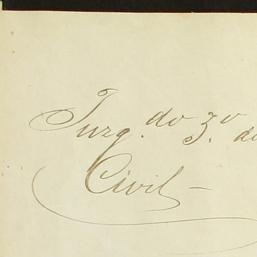 Juzg.do 3.o de
Civil-